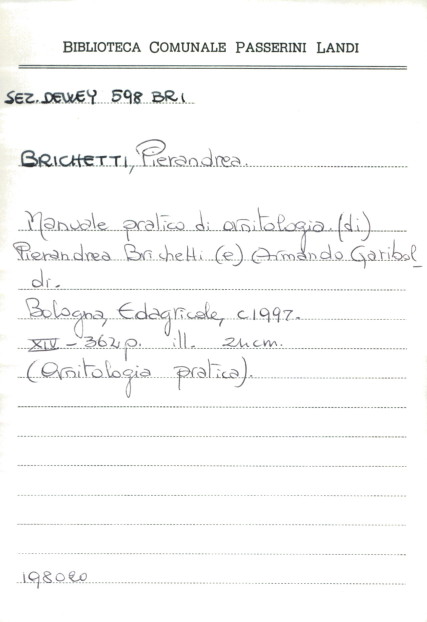 BIBLIOTECA COMUNALE PASSERINI LANDI
SEZ. DEWEY 598 BRI
BRICHETTI, Pierandrea.
Manuale pratico di ornitologia. (di)
Pierandrea Brichetti (e) Armando Garibol_
di.
Bologna, Edagricole, c1997.
XIV - 362 p. ill. 24 cm.
(Ornitologia pratica).
198020